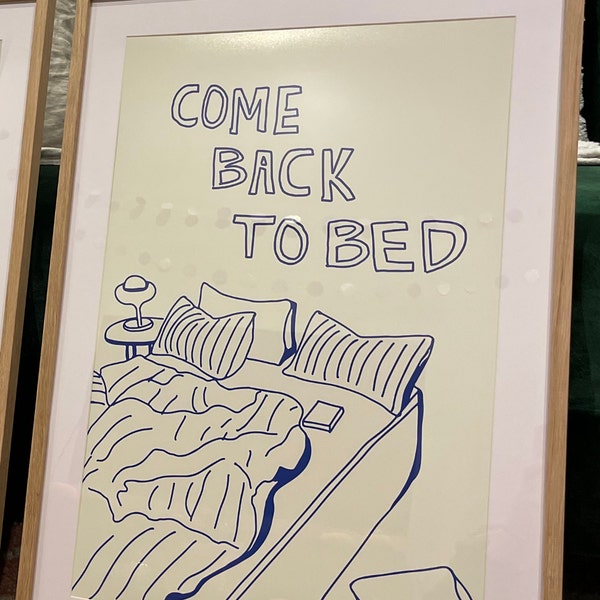 COME
BACK
TO BED